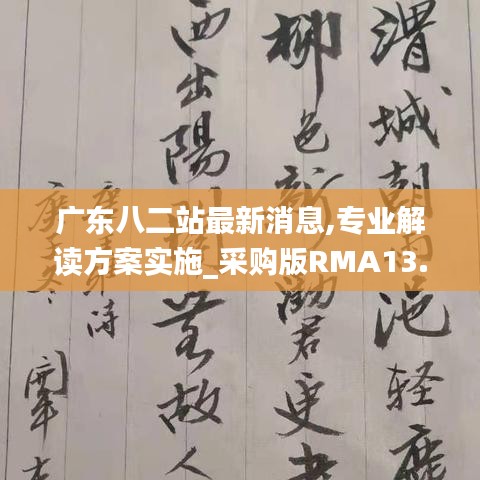 渭城朝雨浥轻
柳色新 君更
西出陽關無故人
广东八二站最新消息,专业解
读方案实施_采购版RMA13.